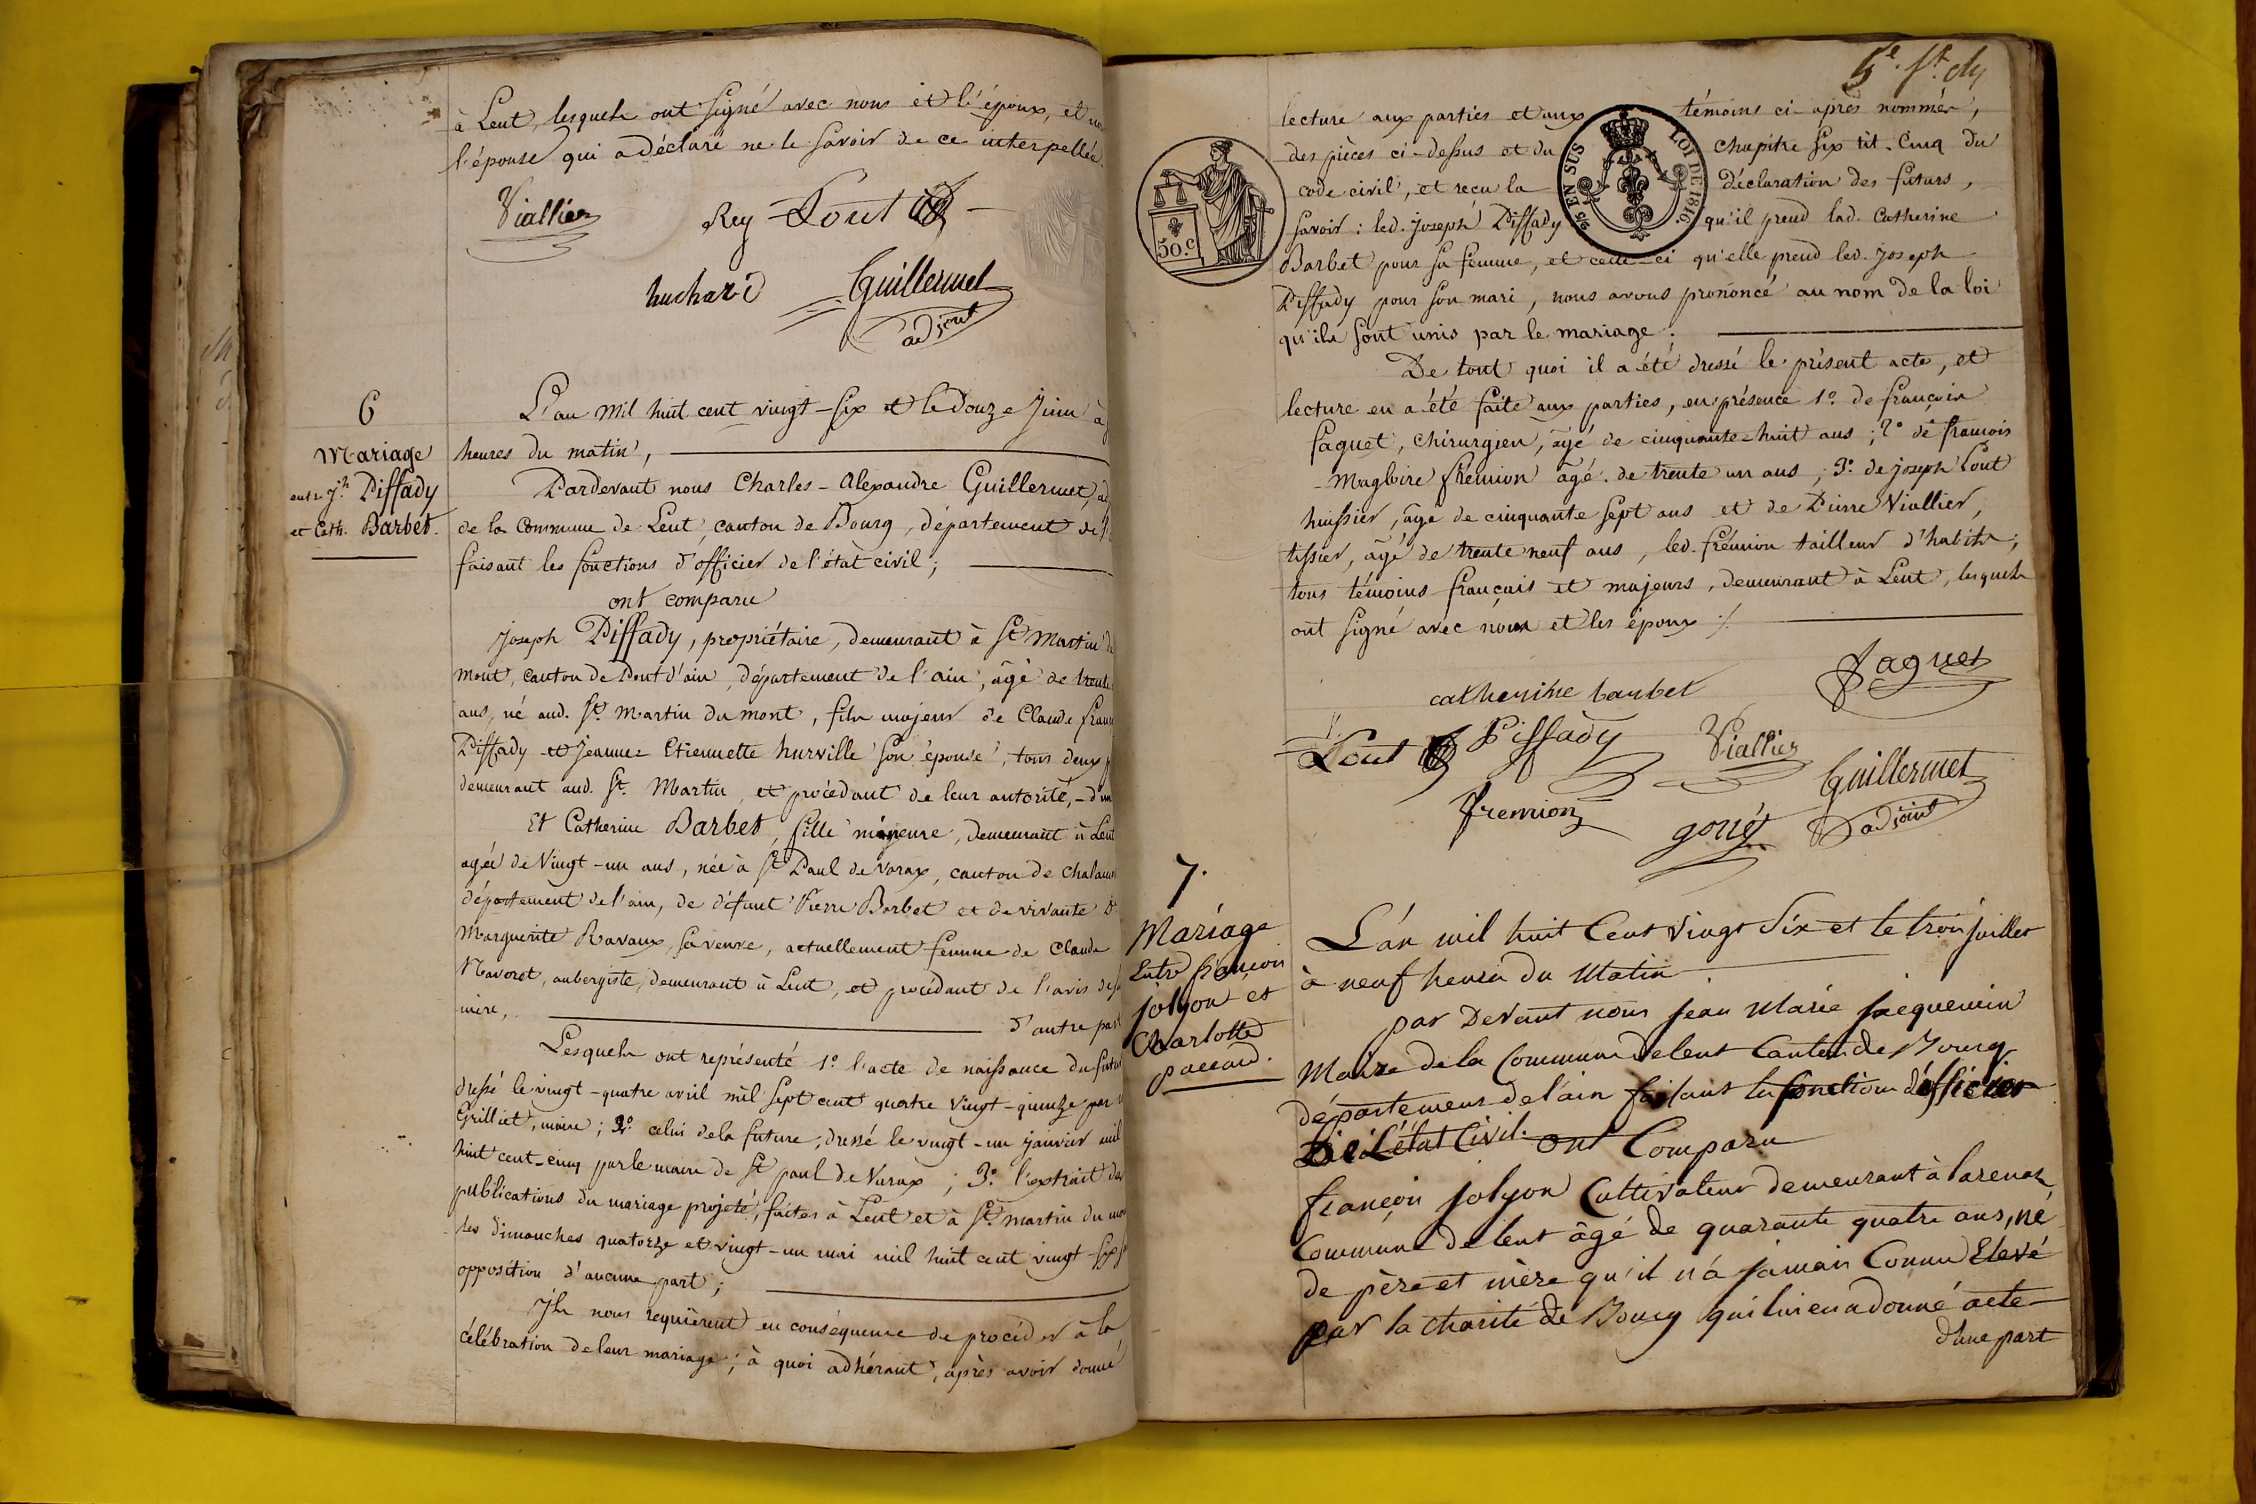 à Lent, lesquels ont signé avec nous et l'époux, et non
l'épouse qui a déclaré ne le savoir de ce interpellée.
Viallier Rey Pont
huchard Guillermet
adjoint
6
Mariage
entre Jh. Piffady
et Cath. Barbet.
L'an mil huit cent vingt-six et le douze Juin à
heures du matin,
Pardevant nous Charles-Alexandre Guillermet, ad
de la Commune de Lent, canton de Bourg, département de l'
faisant les fonctions d'officier de l'état civil;
ont comparu
Joseph Piffady, propriétaire, demeurant à St Martin du
mont, canton de Pont d'ain, département de l'ain, âgé de trente
ans, né aud. St. Martin du mont, fils majeur de Claude fran
Piffady et Jeanne Etiennette hurville son épouse, tous deux
demeurant aud. St. Martin, et procédant de leur autorité, - d'u
Et Catherine Barbet, fille majeure, demeurant à Lent
agée de Vingt-un ans, née à St Paul de Varax, canton de Chalam
département de l'ain, de défunt Pierre Barbet et de vivante
Marguerite Ravaux, sa veuve, actuellement femme de Claude
Navoret, aubergiste, demeurant à Lent, et procédant de l'avis de sa
mère, d'autre part
Lesquels ont représenté 1º. l'acte de naissance du futur
dressé le vingt-quatre avril mil sept cent quatre vingt-quinze par
Grilliet, maire; 2º. celui de la future, dressé le vingt-un janvier mil
huit cent-cinq par le maire de St paul de Varax; 3º. l'extrait des
publications du mariage projeté, faites à Lent et à St. martin du mont
les dimanches quatorze et vingt-un mai mil huit cent vingt-six
opposition d'aucune part;
Ils nous requièrent en conséquence de procéder à la
célébration de leur mariage; à quoi adhérant, après avoir donné
lecture aux parties et aux témoins ci-après nommés,
des pièces ci-dessus et du chapitre six tit. Cinq du
code civil, et reçu la déclaration des futurs,
savoir: led. Joseph Piffady qu'il prend lad. Catherine
Barbet pour sa femme, et celle-ci qu'elle prend led. Joseph
Piffady pour son mari, nous avons prononcé au nom de la loi
qu'ils sont unis par le mariage.
50.C
95 EN SUS LOI DE 1816.
De tout quoi il a été dressé le présent acte, et
lecture en a été faite aux parties, en présence 1º. de françois
faguet, chirurgien, âgé de cinquante-huit ans; 2º de francois
Magloire frémion âgé de trente un ans; 3º. de joseph Pont
huissier, âgé de cinquante sept ans et de Pierre Viallier,
tissier, âgé de trente neuf ans, led. frémion tailleur d'habits;
tous témoins français et majeurs, demeurant à Lent, lesquels
ont signé avec nous et les époux ./.
catherine barbet faguet
Pont Piffady Viallier
Guillermet
fremion adjoint
7.
Mariage
Entre françois
jolyon et
Charlotte
paccard.
L'an mil huit Cent vingt Six et le trois juillet
à neuf heures du Matin
par Devant nous jean Marie jacquemin
Maire de la Commune de lent Canton de Bourg
département de l'ain faisant les fonctions d'officier
De L'état Civil. ont Comparu
françois jolyon Cultivateur demeurant à
Commune de lent âgé de quarante quatre ans, né
de père et mère qu'il n'a jamais Connu Elevé
par la charité de Bourg qui lui en a donné acte
d'une part